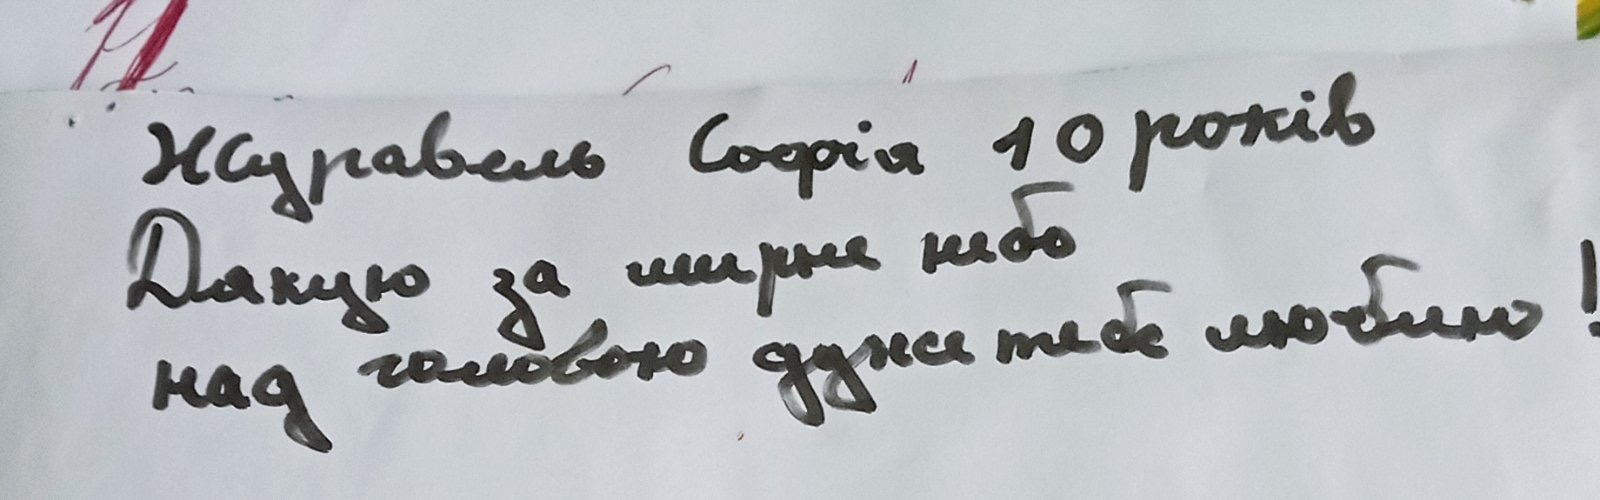 Журавель Софія 10 років
Дякую за мирне небо
над головою дуже тебе люблю!